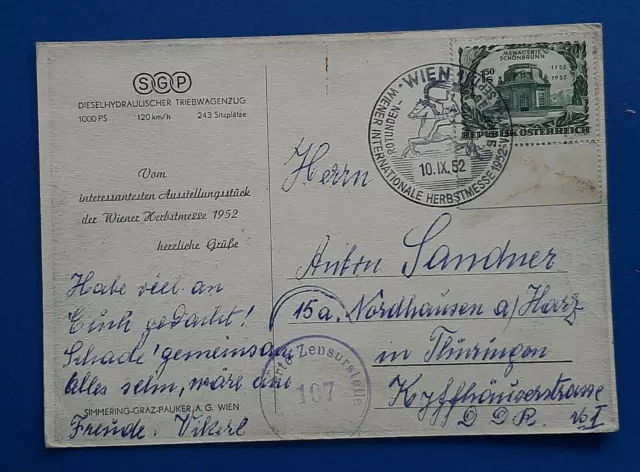 SGP
DIESELHYDRAULISCHER TRIEBWAGENZUG
1000 PS 120 km/h 243 Sitzplätze
Vom
interessantesten Ausstellungsstück
der Wiener Herbstmesse 1952
herzliche Grüße
Habe viel an
Euch gedacht!
Schade! gemeinsam
alles sehn, wäre eine
SIMMERING-GRAZ-PAUKER A. G. WIEN
Freude.
WIEN
ROTUNDEN-
WIENER INTERNATIONALE HERBSTMESSE 1952
10.IX.52
MENAGERIE
SCHÖNBRUNN
1752
1952
1.50
REPUBLIK ÖSTERREICH
Herrn
Anton Sandner
15a. Nordhausen a/Harz
in Thüringen
Kyffhäuserstrasse
D D R. No I
Zensurstelle
167